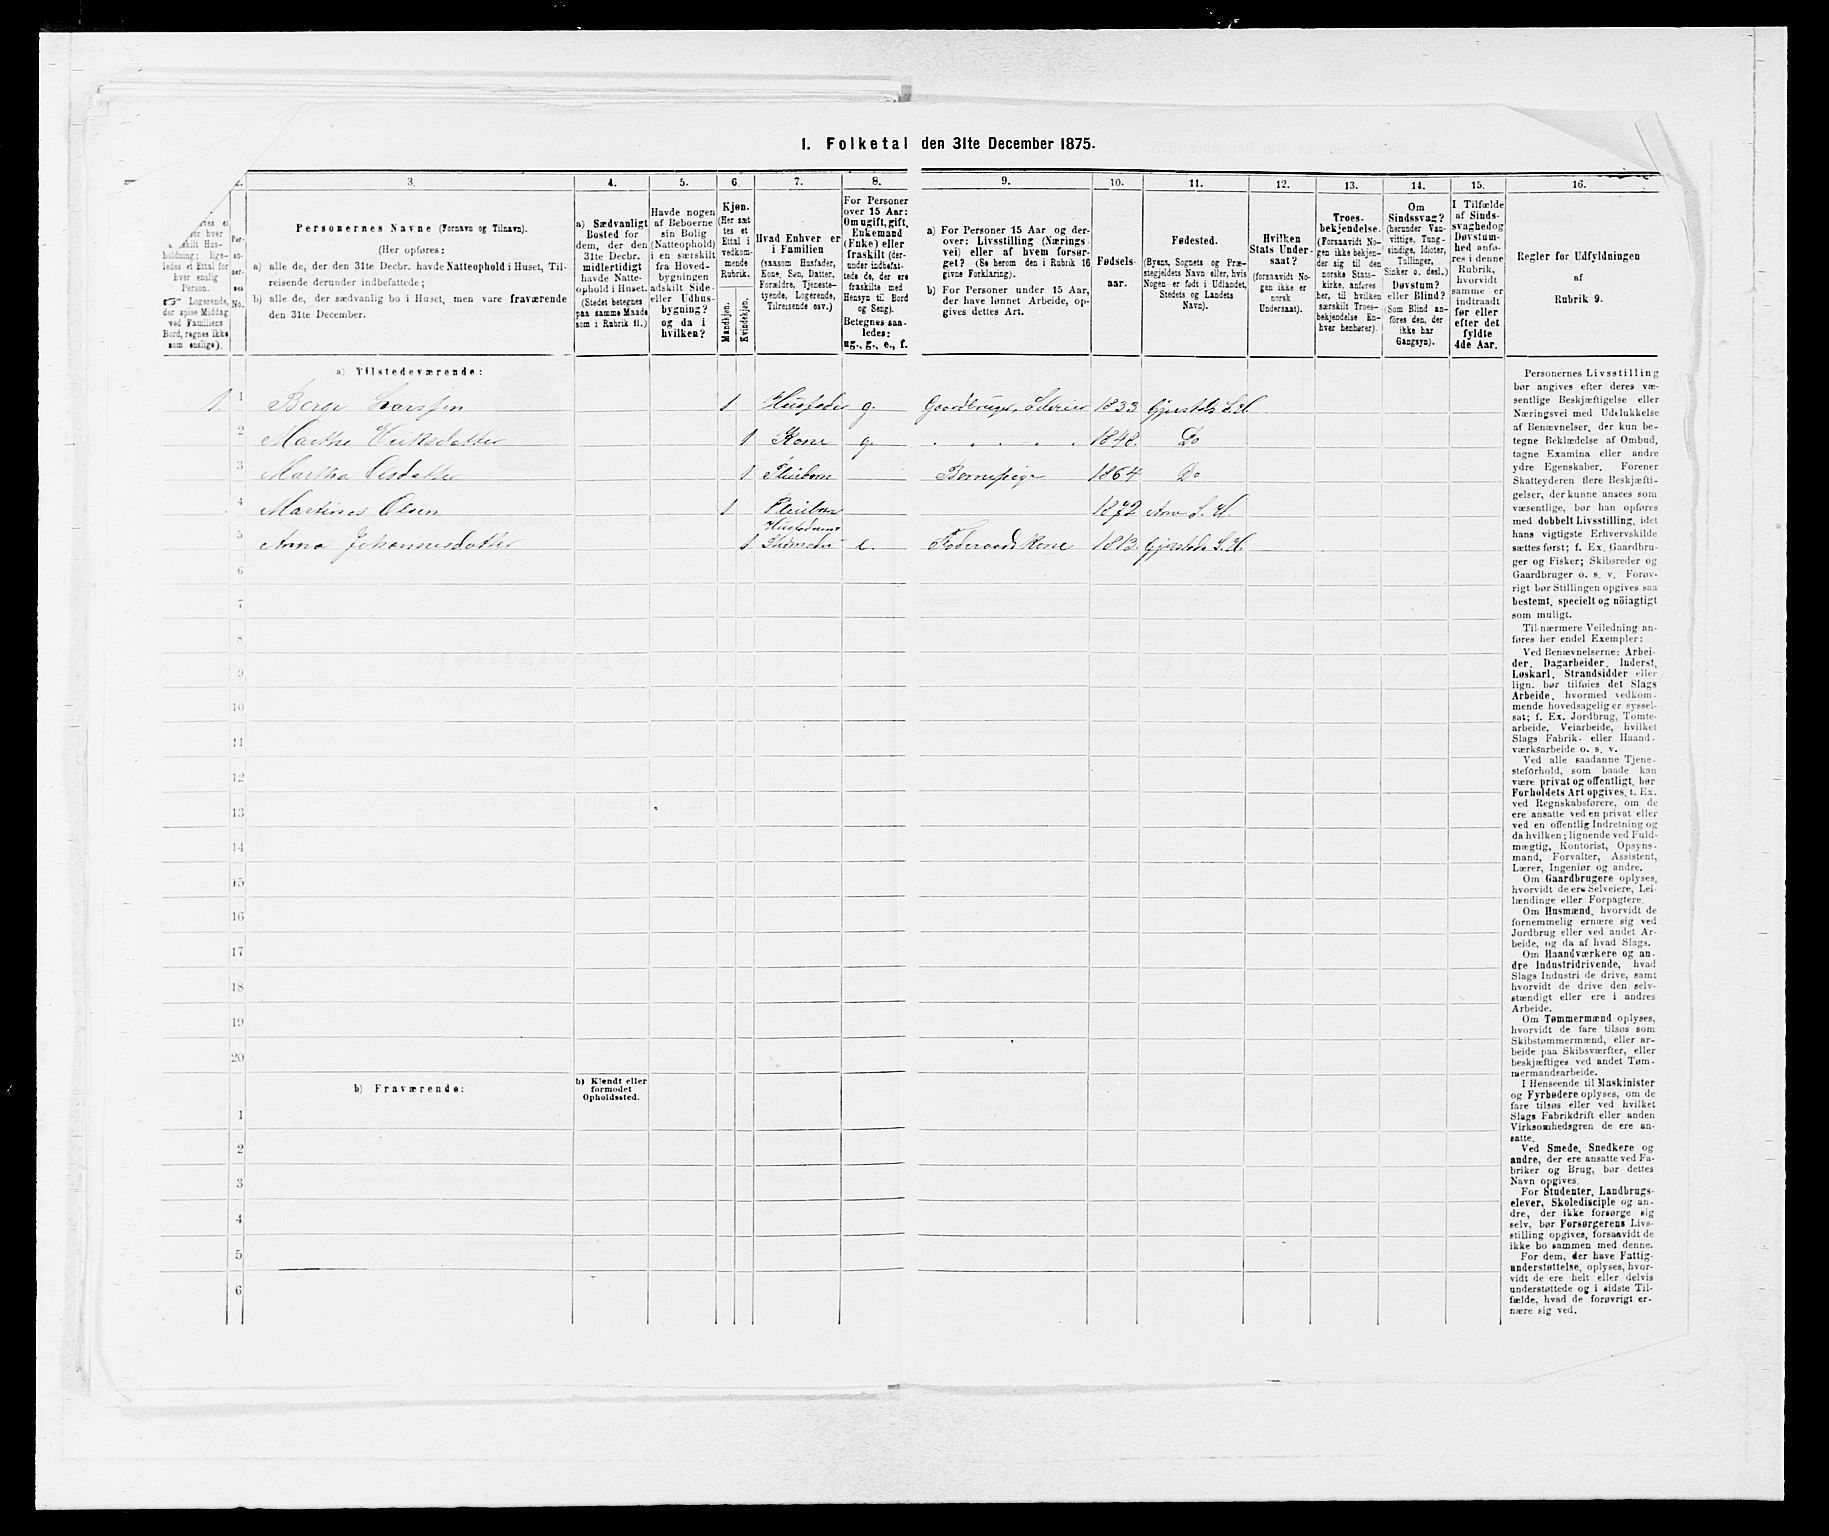 1. Folketal den 31te December 1875.
2.
3.
4.
5.
6.
7.
8.
9.
10.
11.
12.
13.
14.
15.
16.
Per-
so-
ner-
nes
No.
for hver
holdning; lige-
ledes et Ettal for
hver enslig
Person.
☞ Logerende,
der spise Middag
ved Familiens
Bord, regnes ikke
som enslige).
Personernes Navne (Fornavn og Tilnavn).
(Her opføres:
a) alle de, der den 31te Decbr. havde Natteophold i Huset, Til-
reisende derunder indbefattede;
b) alle de, der sædvanlig bo i Huset, men vare fraværende
den 31te December.
a) Sædvanligt
Bosted for
dem, der den
31te Decbr.
midlertidigt
havde Natte-
ophold i Huset.
(Stedet betegnes
paa samme Maade
som i Rubrik 11.)
Havde nogen
af Beboerne
sin Bolig
(Natteophold)
i en særskilt
fra Hoved-
bygningen
adskilt Side-
eller Udhus-
bygning?
og da i
hvilken?
Kjøn.
(Her sæt-
tes et
Ettal i
vedkom-
mende
Rubrik.
Mandkjøn.
Kvindekjøn.
Hvad Enhver er
i Familien
(saasom Husfader,
Kone, Søn, Datter,
Forældre, Tjeneste-
tyende, Logerende,
Tilreisende osv.)
For Personer
over 15 Aar:
Om ugift, gift,
Enkemand
(Enke) eller
fraskilt (der-
under indbefat-
tede de, der ere
fraskilte med
Hensyn til Bord
og Seng).
Betegnes saa-
ledes:
ug., g., e., f.
a) For Personer 15 Aar og der-
over: Livsstilling (Nærings-
vei) eller af hvem forsør-
get? (Se herom den i Rubrik 16
givne Forklaring).
b) For Personer under 15 Aar,
der have lønnet Arbeide, op-
gives dettes Art.
Fødsels-
aar.
Fødested.
(Byens, Sognets og Præ-
stegjeldets Navn eller, hvis
Nogen er født i Udlandet,
Stedets og Landets
Navn).
Hvilken
Stats Under-
saat?
(forsaavidt No-
gen ikke er
norsk
Undersaat).
Troes-
bekjendelse.
(Forsaavidt No-
gen ikke bekjen-
der sig til den
norske Stats-
kirke, anføres
her, til hvilken
særskilt Troes-
bekjendelse En-
hver henhører).
Om
Sindssvag?
(herunder Van-
vittige, Tung-
sindige, Idioter,
Tullinger,
Sinker o. desl.)
Døvstum?
eller Blind?
(Som Blind an-
føres den, der
ikke har
Gangsyn).
I Tilfælde
af Sinds-
svaghed og
Døvstum-
hed anfø-
res i denne
Rubrik,
hvorvidt
samme er
indtraadt
før eller
efter det
fyldte
4de Aar.
Regler for Udfyldningen
af
Rubrik 9.
a) Tilstedeværende:
1. 1 Larssen 1 Husfader g. Gaardbruger, Seleier 1833 Gjerstds S. H
2 Marthe 1 Kone g. . . . . . 1848. Do
3 Martha Olsdatter 1 Pleiebarn Barnepige 1864 Do
4 Martines Olsen 1 Pleiebarn 1872 S. H.
5 Anna Johannesdatter 1 e. Føderaads Kone 1813. Gjerstds S. H.
6
7
8
9
10
11
12
13
14
15
16
17
18
19
20
b) Fraværende:
b) Kjendt eller
formodet
Opholdssted.
1
2
3
4
5
6
Personernes Livsstilling
bør angives efter deres væ-
sentlige Beskjæftigelse eller
Næringsvei med Udelukkelse
af Benævnelser, der kun be-
tegne Beklædelse af Ombud,
tagne Examina eller andre
ydre Egenskaber. Forener
Skatteyderen flere Beskjæfti-
gelser, der kunne ansees som
væsentlige, bør han opføres
med dobbelt Livsstilling, idet
hans vigtigste Erhvervskilde
sættes først; f. Ex. Gaardbru-
ger og Fisker; Skibsreder og
Gaardbruger o. s. v. Forøv-
rigt bør Stillingen opgives saa
bestemt, specielt og nöiagtigt
som muligt.
Til nærmere Veiledning an-
føres her endel Exempler:
Ved Benævnelserne: Arbei-
der, Dagarbeider, Inderst,
Løskarl, Strandsidder eller
lign. bør tilføies det Slags
Arbeide, hvormed vedkom-
mende hovedsagelig er syssel-
sat; f. Ex. Jordbrug, Tomte-
arbeide, Veiarbeide, hvilket
Slags Fabrik- eller Haand-
værksarbeide o. s. v.
Ved alle saadanne Tjene-
steforhold, som baade kan
være privat og offentligt, bør
Forholdets Art opgives, t. Ex.
ved Regnskabsførere, om de
ere ansatte ved en privat eller
ved en offentlig Indretning og
da hvilken; lignende ved Fuld-
mægtig, Kontorist, Opsyns-
mand, Forvalter, Assistent,
Lærer, Ingeniør og andre.
Om Gaardbrugere oplyses,
hvorvidt de ere Selveiere, Lei-
lændinge eller Forpagtere.
Om Husmænd, hvorvidt de
fornemmelig ernære sig ved
Jordbrug eller ved andet Ar-
beide, og da af hvad Slags.
Om Haandværkere og an-
dre Industridrivende, hvad
Slags Industri de drive, samt
hvorvidt de drive den selv-
stændigt eller ere i andres
Arbeide.
Om Tømmermænd oplyses,
hvorvidt de fare tilsøs som
Skibstømmermænd, eller ar-
beide paa Skibsværfter, eller
beskjæftiges ved andet Tøm-
mermandsarbeide.
I Henseende til Maskinister
og Fyrbødere oplyses, om de
fare tilsøs eller ved hvilket
Slags Fabrikdrift eller anden
Virksomhedsgren de ere an-
satte.
Ved Smede, Snedkere og
andre, der ere ansatte ved Fa-
briker og Brug, bør dettes
Navn opgives.
For Studenter, Landbrugs-
elever, Skoledisciple og an-
dre, der ikke forsørge sig
selv, bør Forsørgerens Livs-
stilling opgives, forsaavidt de
ikke bo sammen med denne.
For dem, der have Fattig-
understøttelse, oplyses, hvor-
vidt de ere helt eller delvis
understøttede og i sidste Til-
fælde, hvad de forøvrigt er-
nære sig ved.